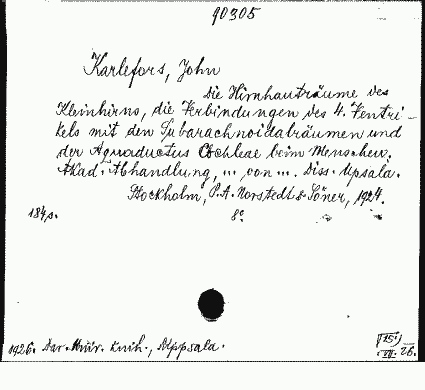 90305
Karlefors, John
Die Hirnhauträume des
Kleinhirns, die Verbindungen des 4. Ventri-
kels mit den Subarachnoidalräumen und
der Aquaductus Cochleae beim Menschen.
Akad. Abhandlung, ... von ... Diss. Upsala.
Stockholm, P. A. Norstedt & Söner, 1924.
184 s. 8°
1926. Upsala.
26.